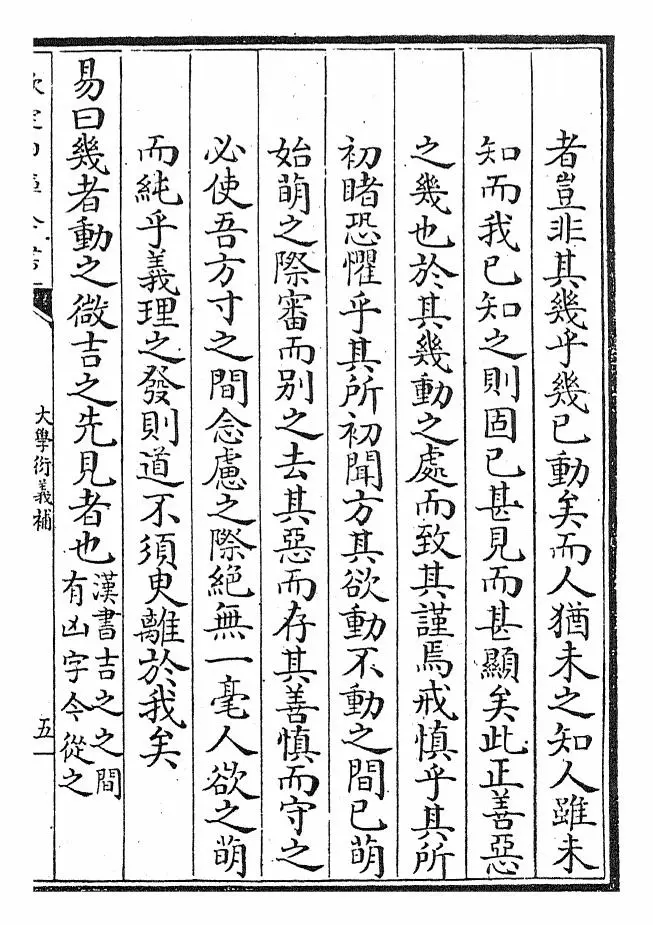 者豈非其幾乎幾已動矣而人猶未之知人雖未
知而我已知之則固已甚見而甚顯矣此正善惡
之幾也於其幾動之處而致其謹焉戒慎乎其所
初睹恐懼乎其所初聞方其欲動不動之間已萌
始萌之際審而别之去其惡而存其善慎而守之
必使吾方寸之間念慮之際絶無一毫人欲之萌
而純乎義理之發則道不須臾離於我矣
易曰幾者動之微吉之先見者也
漢書吉之之間
有凶字今從之
欽定四庫全書
大學衍義補
五